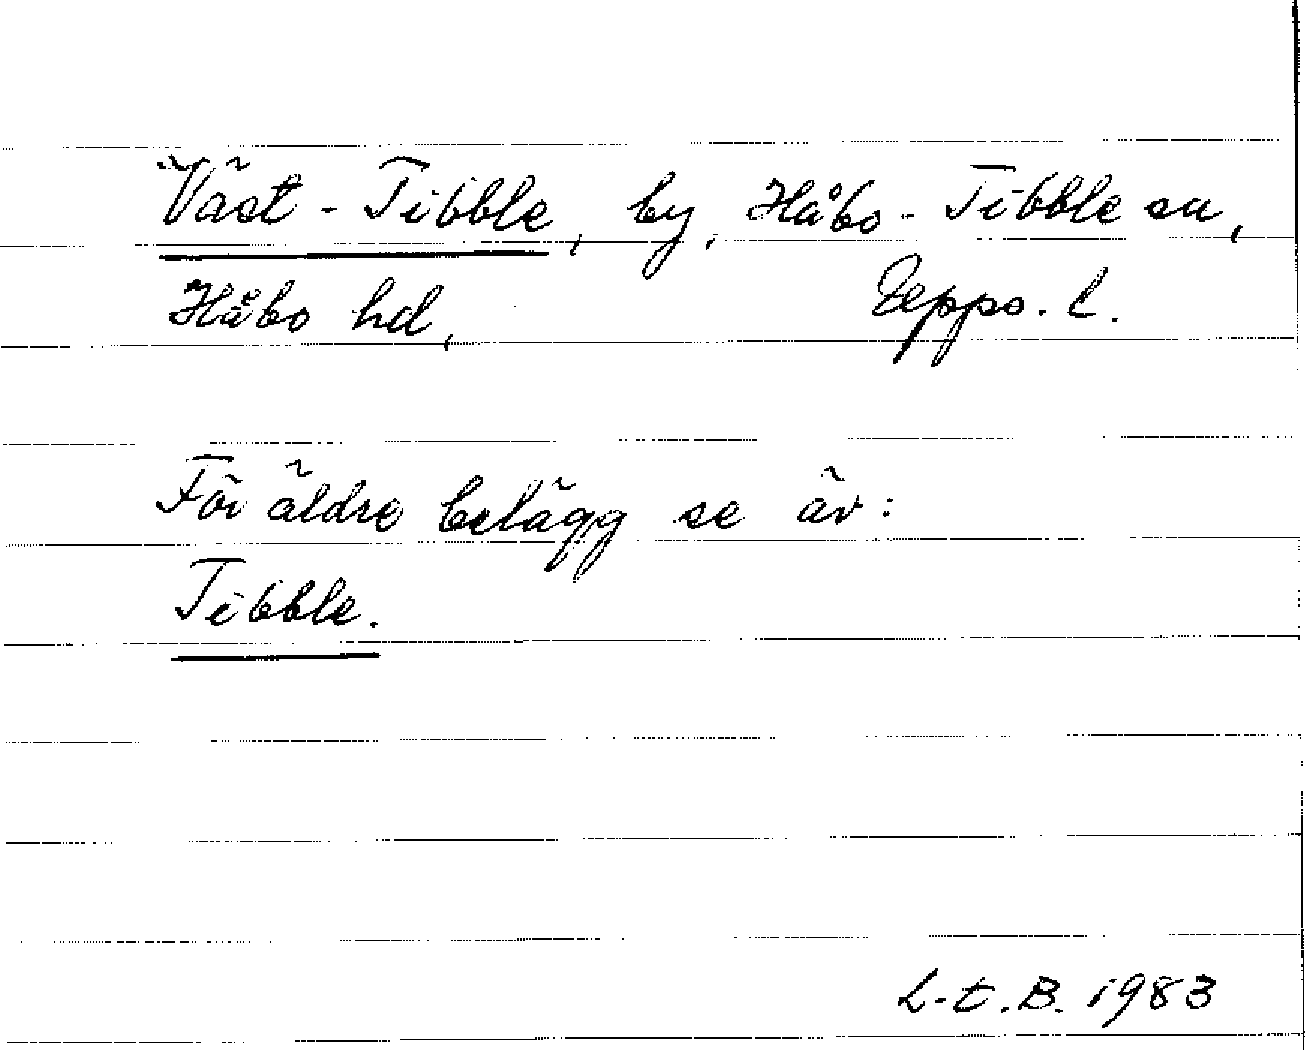 Väst-Tibble, by, Håbo-Tibble sn,
Håbo hd, Upps. l.
För äldre belägg se äv:
Tibble.
L-t.B. 1983